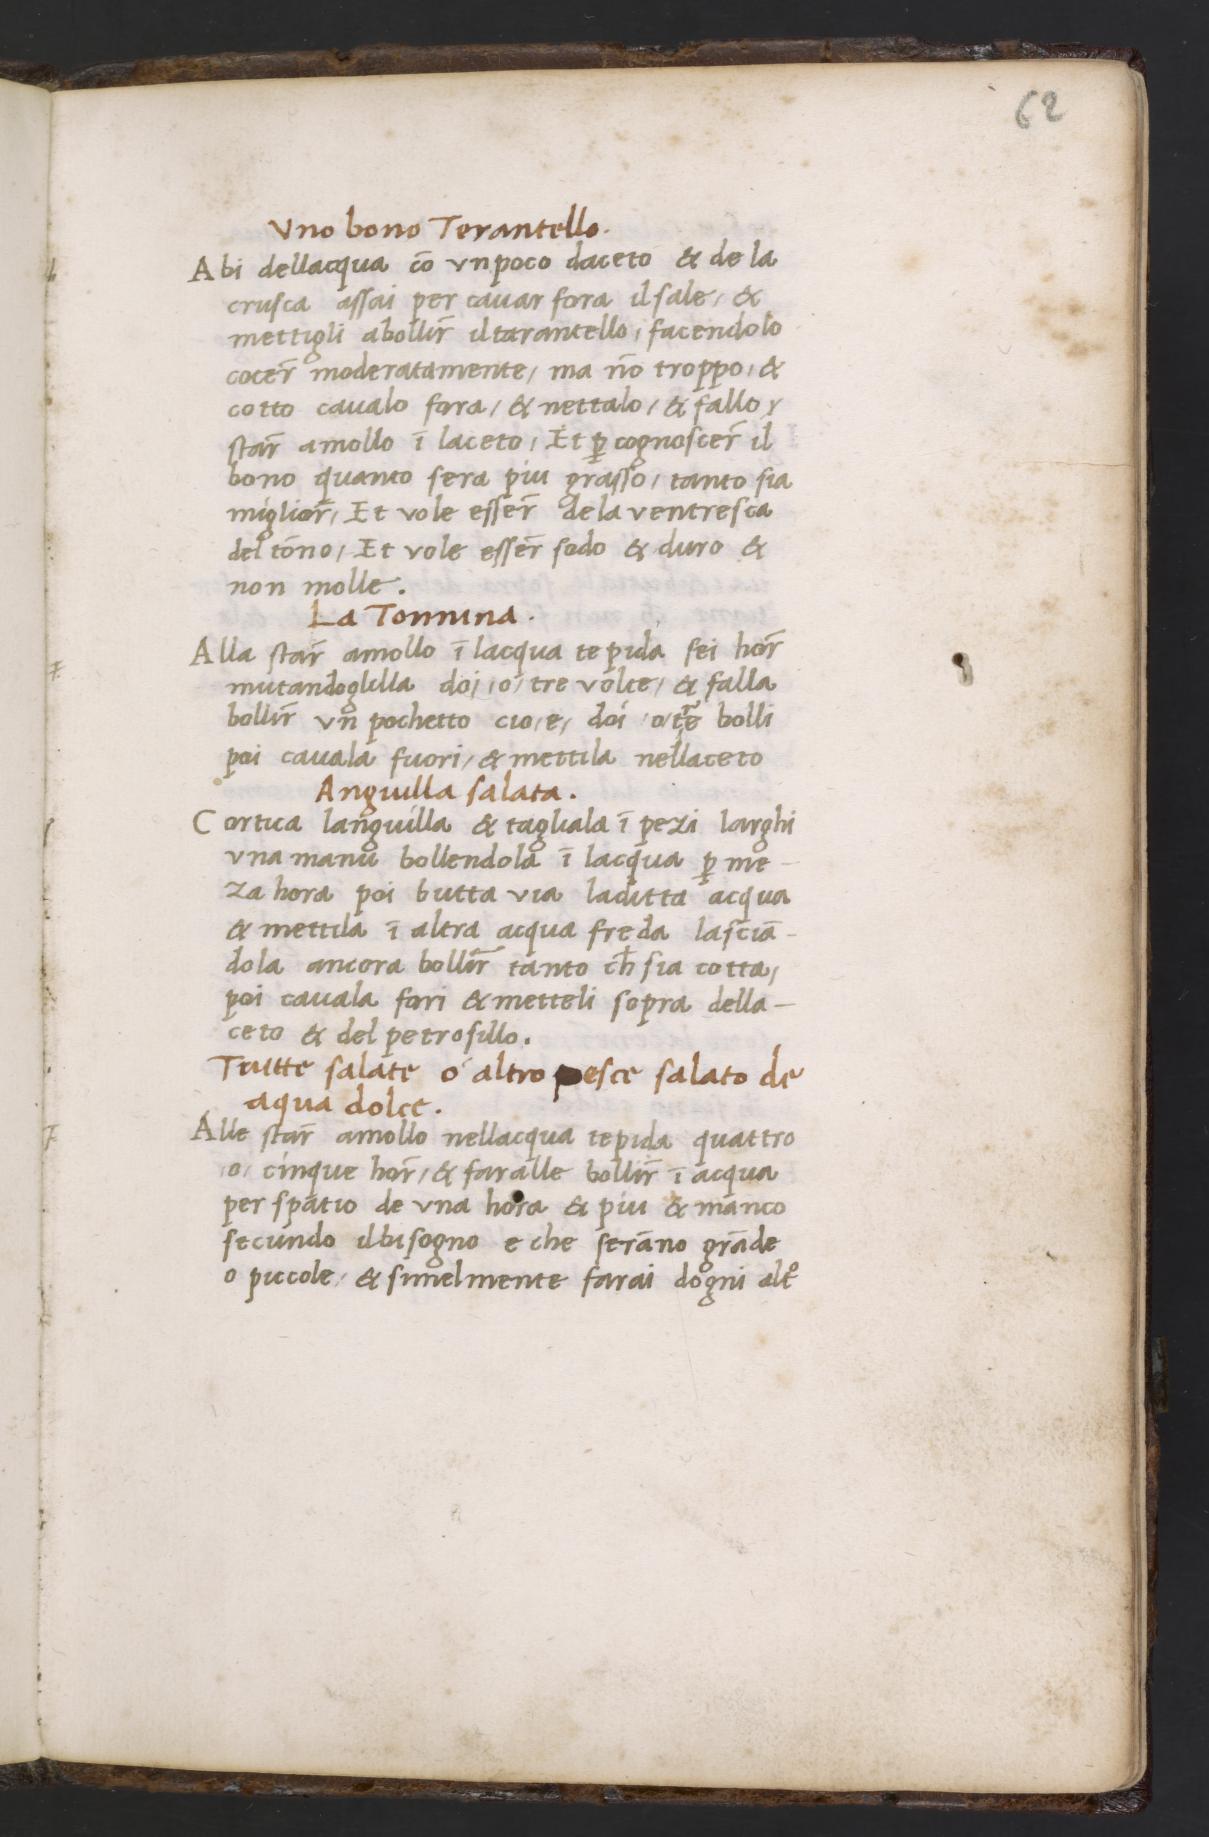 62
Uno bono Terantello.
Abi dellacqua cō un poco daceto & de la
crusca assai per cavar fora il sale, &
mettigli abollir̄ il tarantello, facendolo
cocer̄ moderatamente, ma nō troppo, &
cotto cavalo fora, & nettalo, & fallo
star̄ amollo ī laceto, Et ꝑ cognoscer̄ il
bono quanto sera piu grasso, tanto sia
miglior̄, Et vole esser̄ de la ventresca
del tōno, Et vole esser̄ sodo & duro &
non molle.
La Tonnina.
Alla star̄ amollo ī lacqua tepida sei hor̄
mutandoglilla doi, o, tre volte, & falla
bollir̄ un pochetto cio, e, doi o tre bolli
poi cavala fuori, & mettila nellaceto
Anguilla salata.
Cortica languilla & tagliala ī pezi larghi
una manu bollendola ī lacqua ꝑ me-
za hora poi butta via laditta acqua
& mettila ī altra acqua freda lasciā-
dola ancora bollir̄ tanto ch̄ sia cotta,
poi cavala fori & metteli sopra della-
ceto & del petrosillo.
Trutte salate o altro pesce salato de
aqua dolce.
Alle star̄ amollo nellacqua tepida quattro
o, cinque hor̄, & faralle bollir̄ ī acqua
per spatio de una hora & piu & manco
secundo il bisogno e che serāno grāde
o piccole, & simelmente farai dogni altº